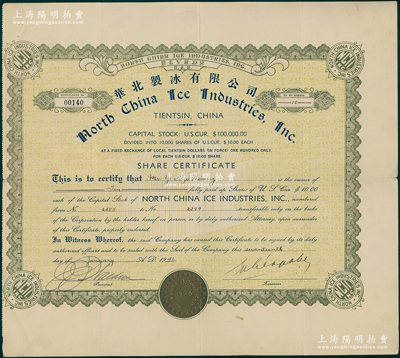 上海陽明拍賣
www.yangmingauction.com
NORTH CHINA ICE INDUSTRIES, INC.
00140
華北製冰有限公司
North China Ice Industries, Inc.
TIENTSIN, CHINA
CAPITAL STOCK: U.S.CUR. $100,000.00
DIVIDED INTO 10,000 SHARES OF U.S.CUR. $10.00 EACH
AS A FIXED EXCHANGE OF LOCAL TIENTSIN DOLLARS (IN FORCE) ONE HUNDRED ONLY.
FOR EACH U.S.CUR. $10.00 SHARE
SHARE CERTIFICATE
This is to certify that is the owner of
Ten fully paid up Shares of U.S. Cur. $10.00
each of the Capital Stock of NORTH CHINA ICE INDUSTRIES, INC., numbered
from No. to No. transferable only on the books
of the Corporation by the holder hereof in person or by duly authorized Attorney upon surrender
of this Certificate properly endorsed.
In Witness Whereof, the said Company has caused this Certificate to be signed by its duly
authorized officers and to be sealed with the Seal of the Company this
day of A.D. 193
President
Treasurer
上海陽明拍賣
www.yangmingauction.com